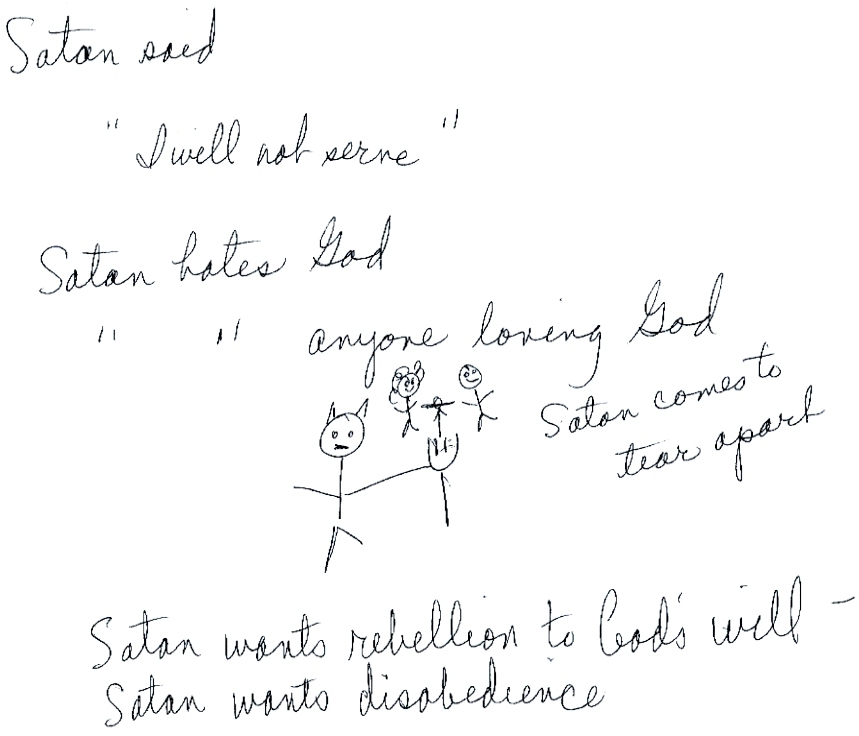 Satan said
"I will not serve"
Satan hates God
" " anyone loving God
Satan comes to
tear apart
Satan wants rebellion to God's will -
Satan wants disobedience